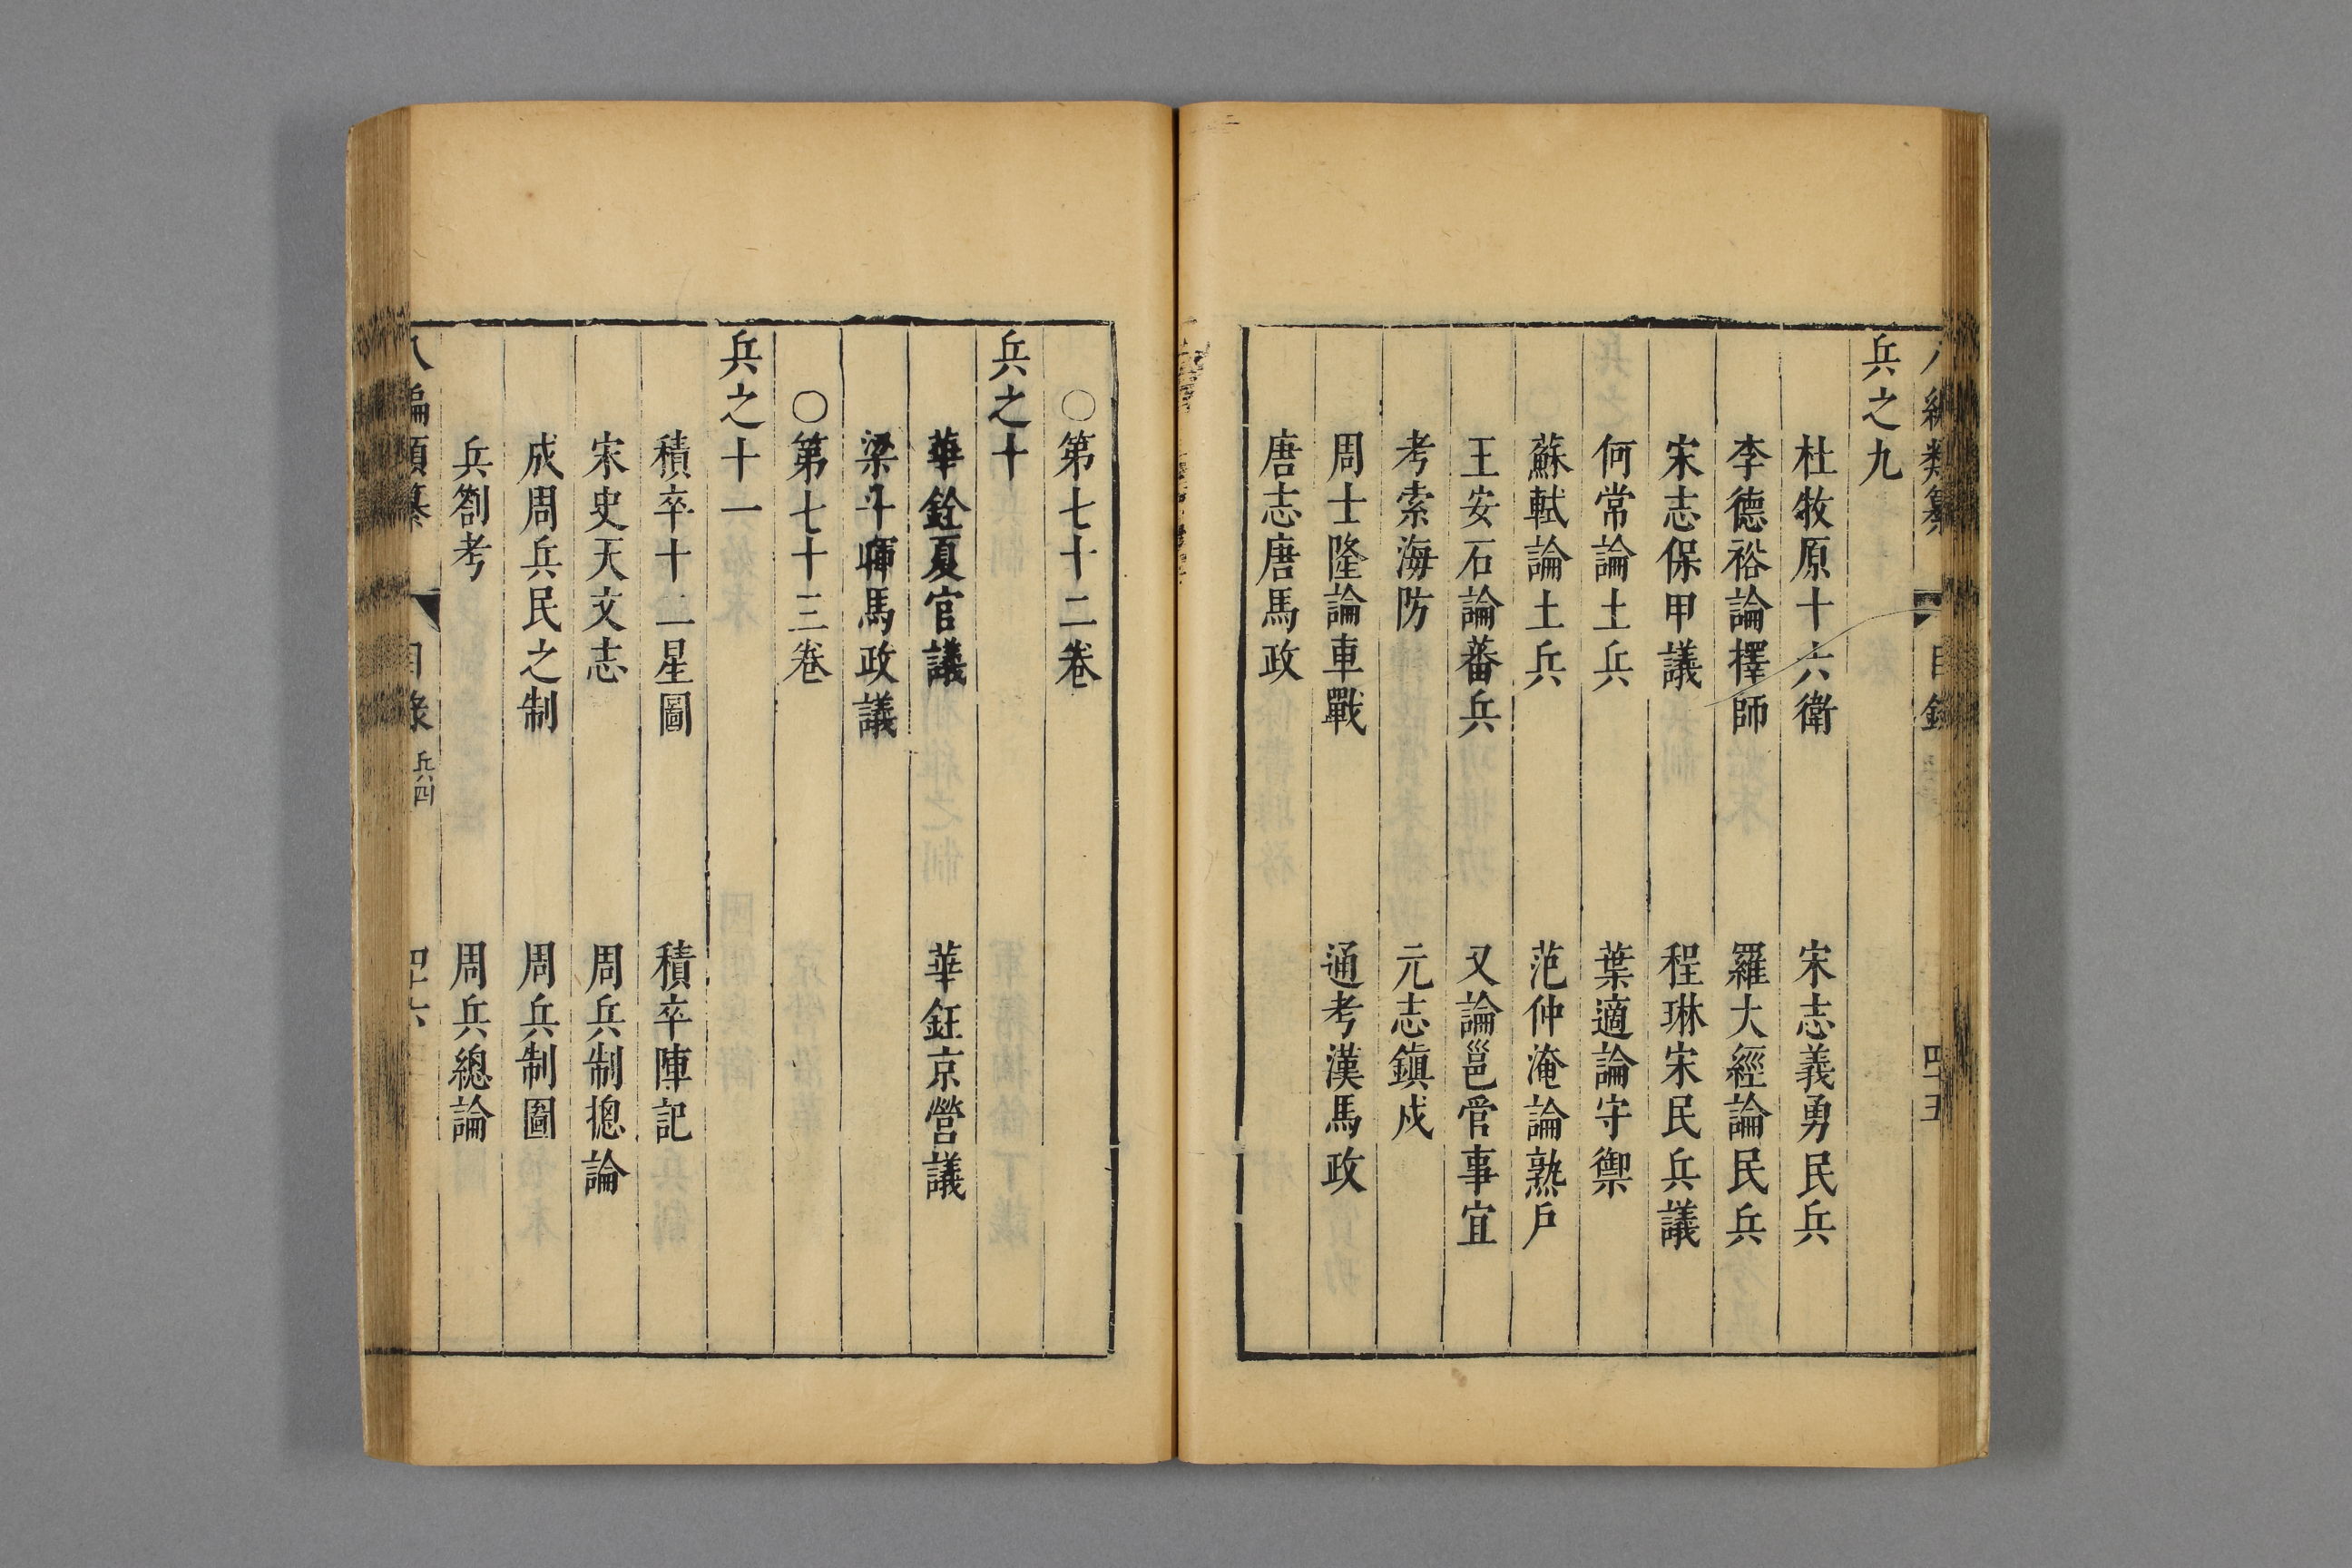 八編類纂 目錄 四十五
兵之九
杜牧原十六衛 宋志義勇民兵
李德裕論擇師 羅大經論民兵
宋志保甲議 程琳宋民兵議
何常論土兵 葉適論守禦
蘇軾論土兵 范仲淹論熟戶
王安石論蕃兵 又論邕管事宜
考索海防 元志鎮戍
周士隆論車戰 通考漢馬政
唐志唐馬政
○第七十二卷
兵之十
華銓夏官議 華鈺京營議
梁斗暉馬政議
○第七十三卷
兵之十一
積卒十二星圖 積卒陣記
宋史天文志 周兵制摠論
成周兵民之制 周兵制圖
兵劄考 周兵總論
八編類纂 目錄 兵四 四十六